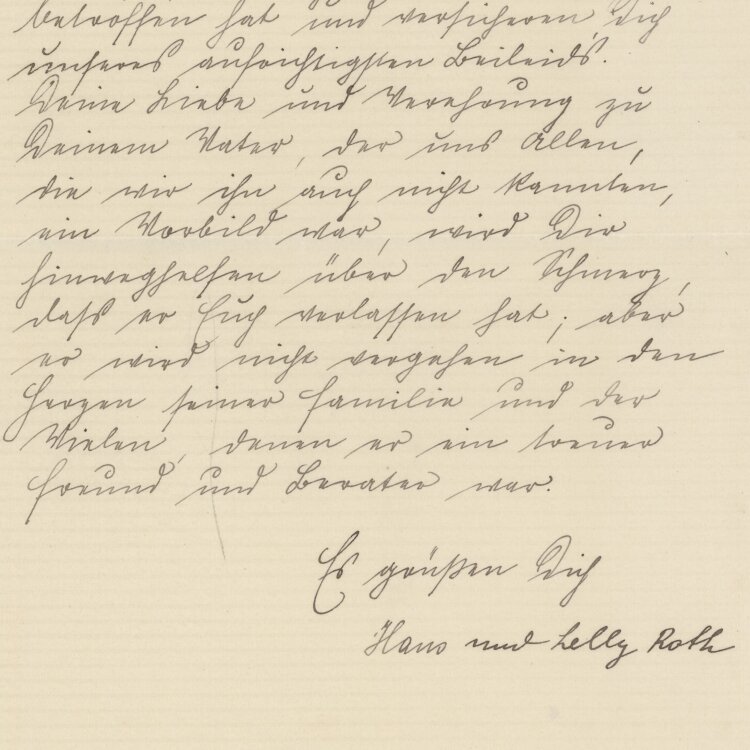 betroffen hat und versicheren Dich
unseres aufrichtigsten Beileids.
Deine Liebe und Verehrung zu
Deinem Vater, der uns Allen,
die wir ihn auch nicht kannten,
ein Vorbild war, wird Dir
hinweghelfen über den Schmerz,
daſs er Euch verlassen hat; aber
er wird nicht vergehen in den
Herzen seiner Familie und der
Vielen, denen er ein treuer
Freund und Berater war.
Es grüßen Dich
Hans und Lelly Roth